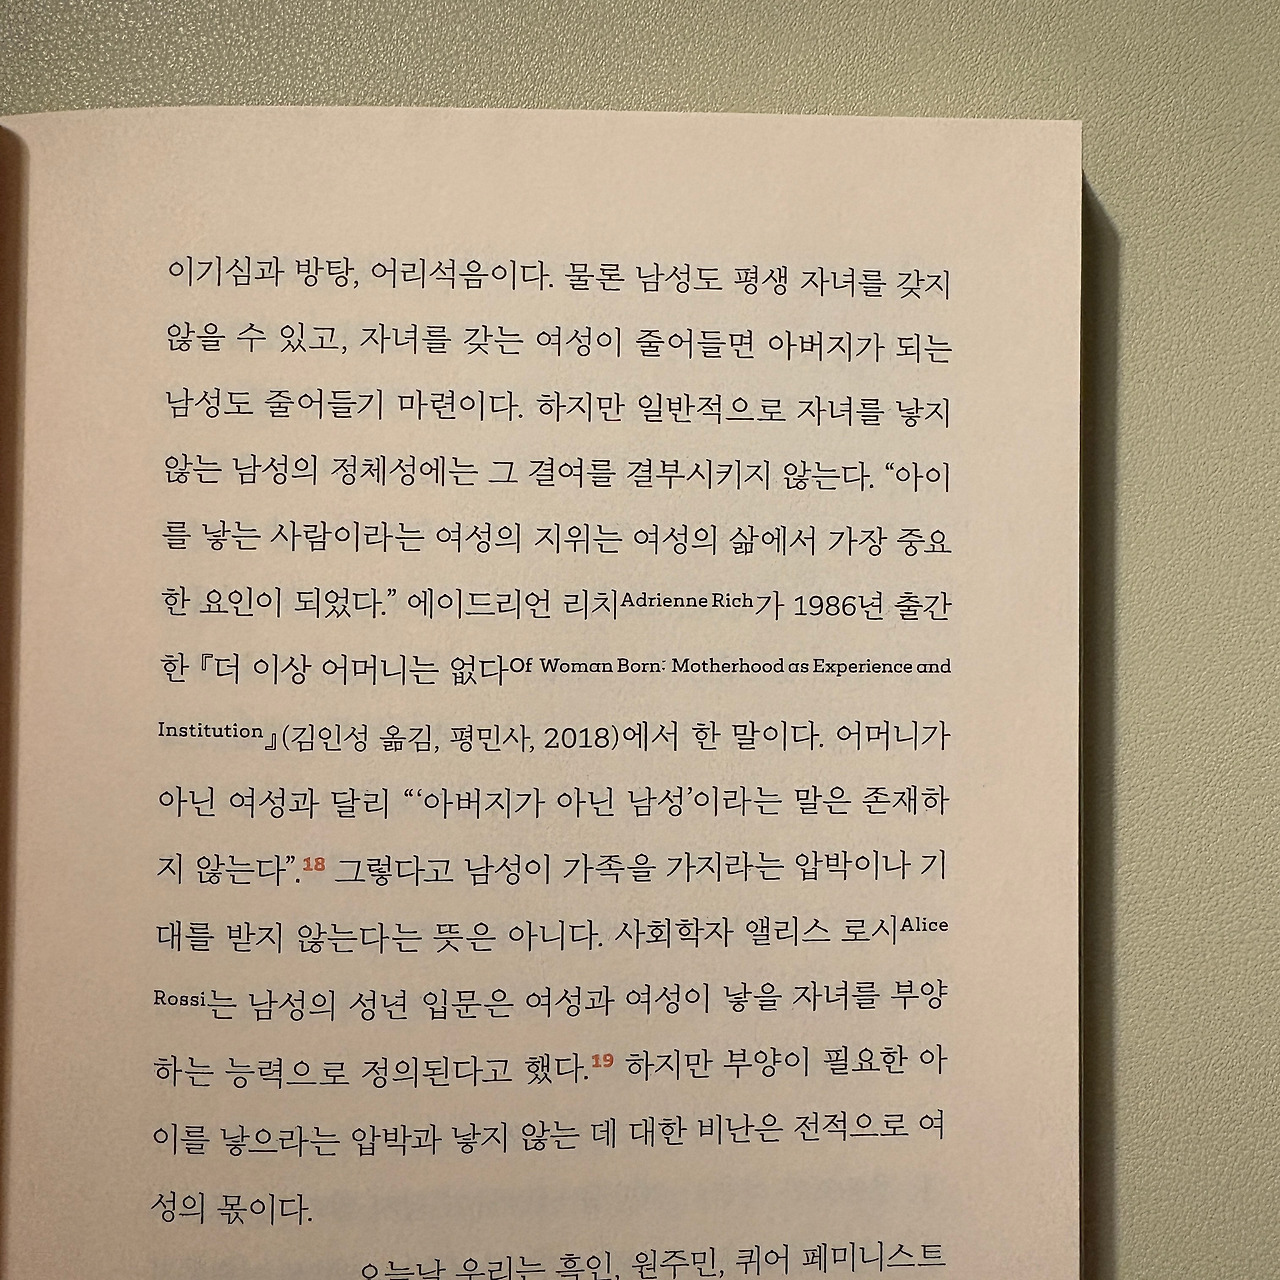 이기심과 방탕, 어리석음이다. 물론 남성도 평생 자녀를 갖지
않을 수 있고, 자녀를 갖는 여성이 줄어들면 아버지가 되는
남성도 줄어들기 마련이다. 하지만 일반적으로 자녀를 낳지
않는 남성의 정체성에는 그 결여를 결부시키지 않는다. “아이
를 낳는 사람이라는 여성의 지위는 여성의 삶에서 가장 중요
한 요인이 되었다.” 에이드리언 리치Adrienne Rich가 1986년 출간
한 『더 이상 어머니는 없다Of Woman Born: Motherhood as Experience and
Institution』(김인성 옮김, 평민사, 2018)에서 한 말이다. 어머니가
아닌 여성과 달리 “‘아버지가 아닌 남성’이라는 말은 존재하
지 않는다”.18 그렇다고 남성이 가족을 가지라는 압박이나 기
대를 받지 않는다는 뜻은 아니다. 사회학자 앨리스 로시Alice
Rossi는 남성의 성년 입문은 여성과 여성이 낳을 자녀를 부양
하는 능력으로 정의된다고 했다.19 하지만 부양이 필요한 아
이를 낳으라는 압박과 낳지 않는 데 대한 비난은 전적으로 여
성의 몫이다.
오늘날 우리는 흑인, 원주민, 퀴어 페미니스트